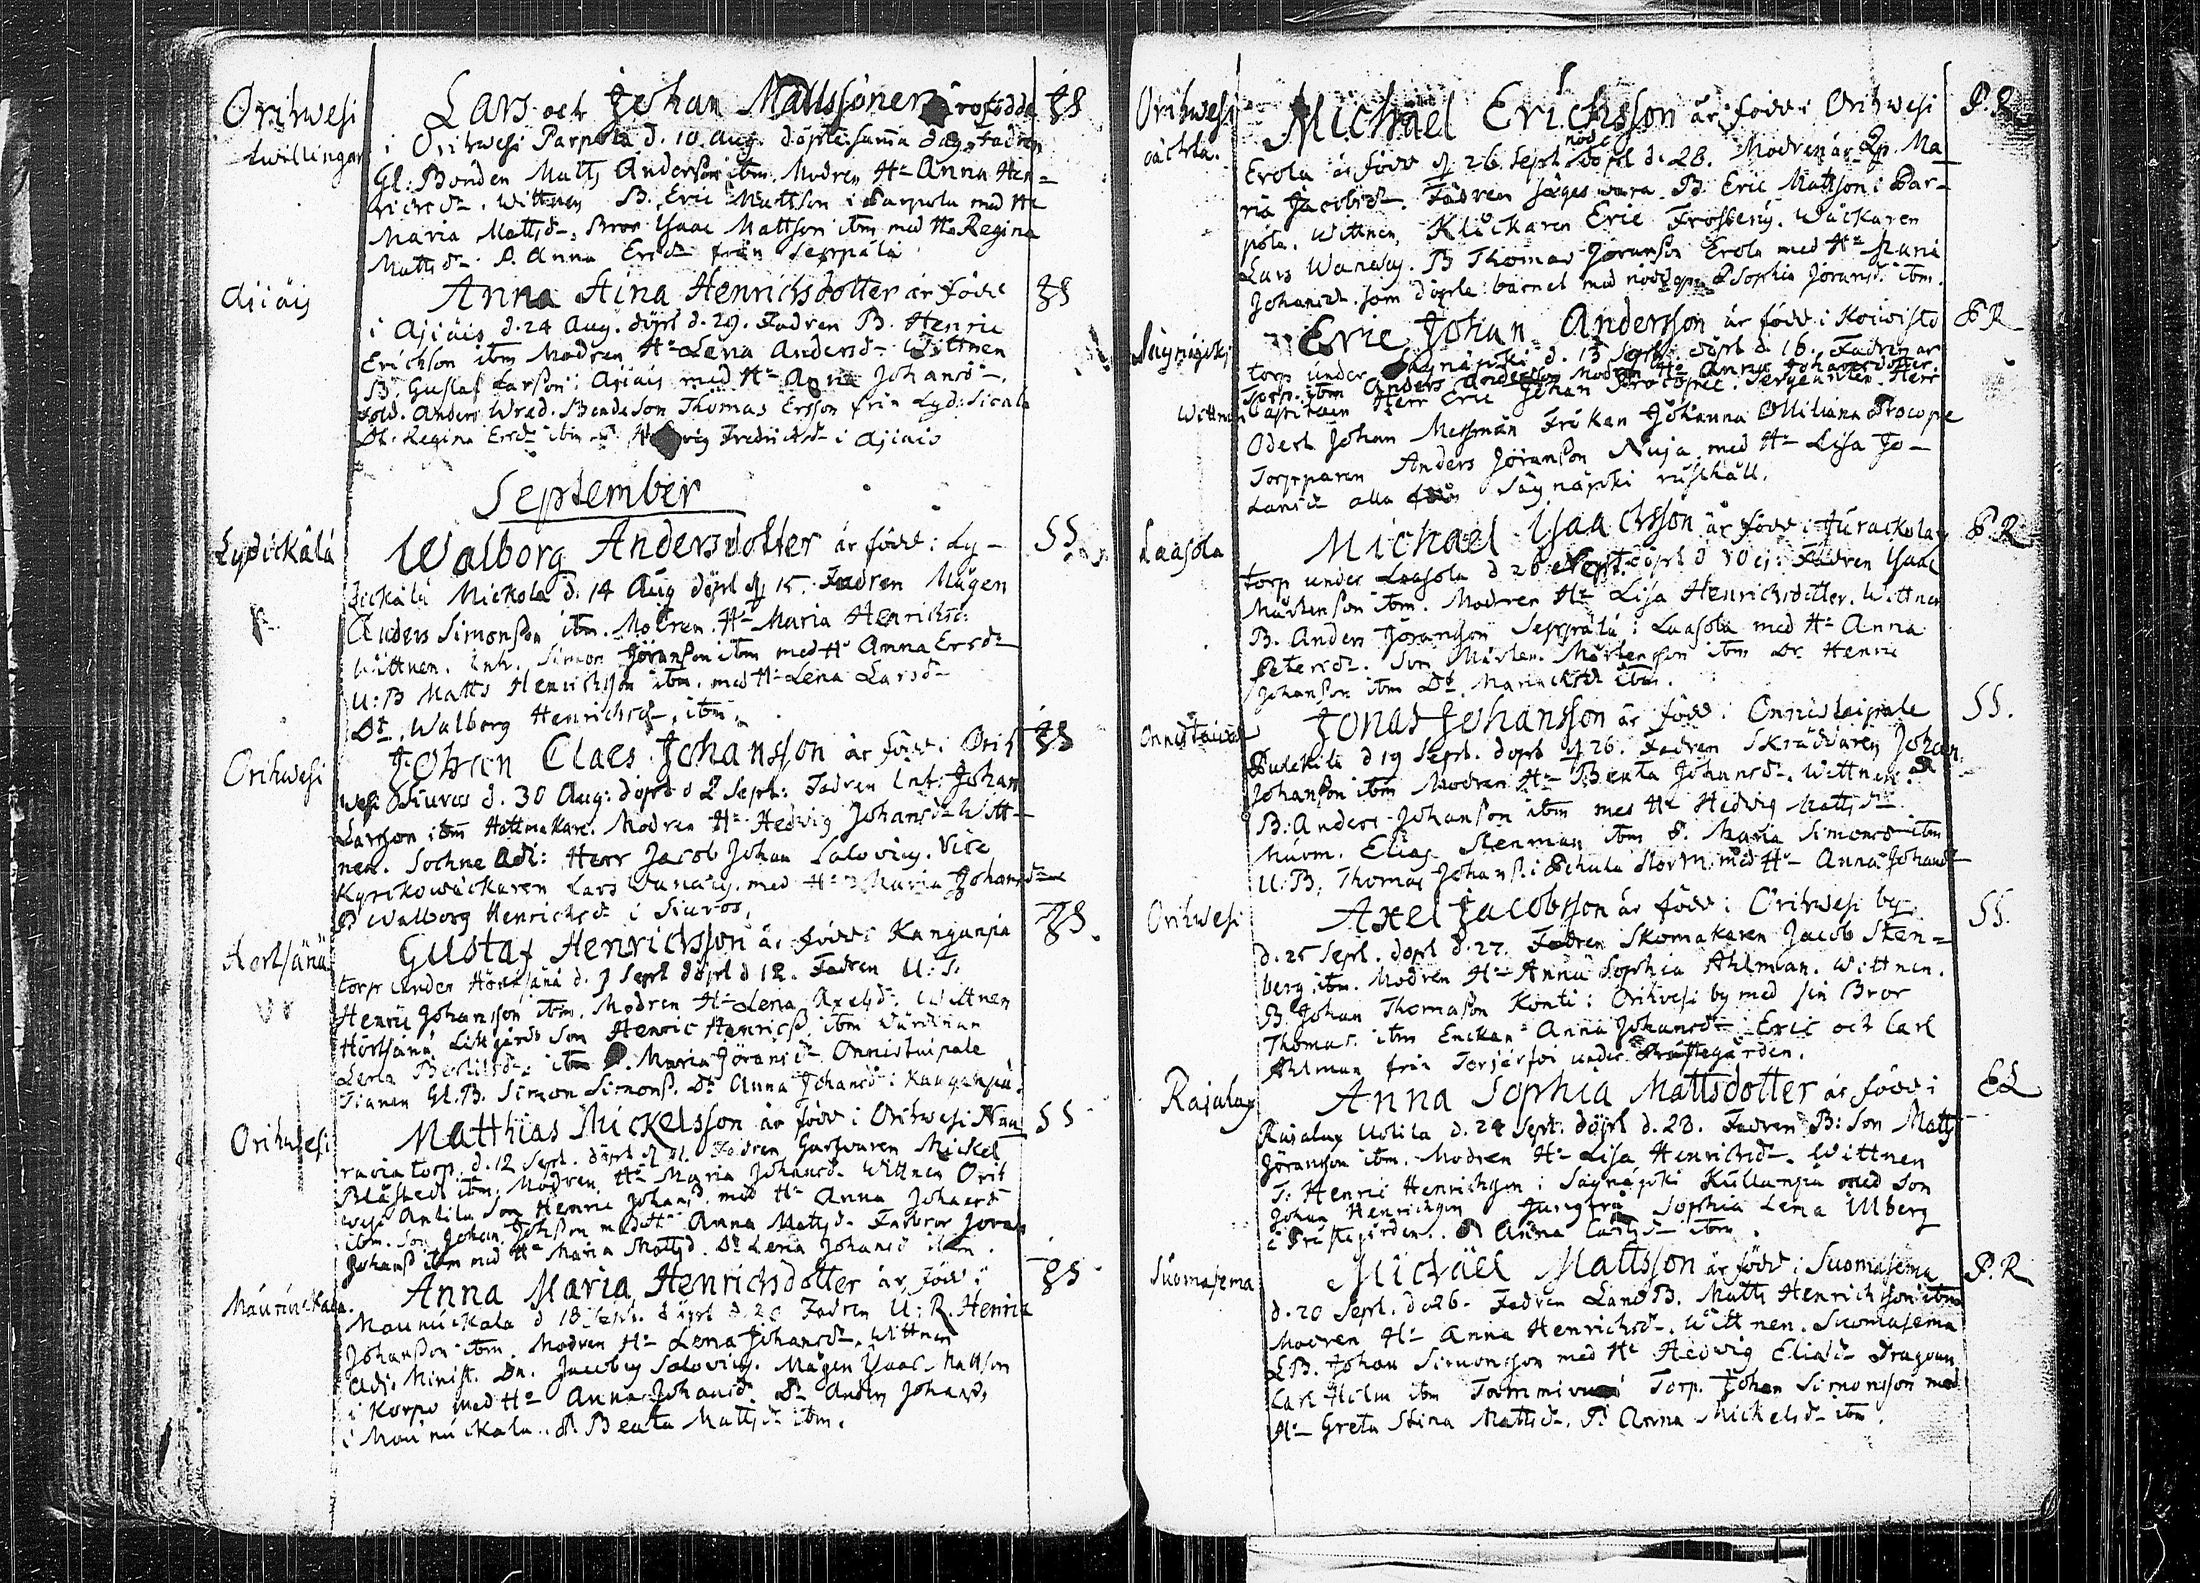 Orihwesi
twillingar
Lars och Johan Mattssöner äro födde
i Orihwesi Parpola d. 10 Aug. döpte samma dag. Fadren
Gl: Bonden Matts Andersson ibm. Modren Hu Anna Hen=
ricsdr. Wittnen B. Eric Mattson i Parpola med Hu
Maria Mattsdr, Bror Isaac Mattson ibm med Hu Regina
Mattsdr. P. Anna Ersdr från Seppälä
Ajiäis
Anna Stina Henrichsdotter är född
i Ajiäis d. 24 Aug. döpt d. 29. Fadren B. Henric
Erichson ibm Modren Hu Lena Andersdr Wittnen
B. Gustaf Larsson i Ajiäis med Hu Anna Johansdr.
Sold. Anders Wred. Bondeson Thomas Ersson från Lyd: Sicala
Dr. Regina Ersdr ibm Fredricsdr i Ajiäis
September
Lydickälä
SS
Walborg Andersdotter är född i Ly-
dickälä Mickola d. 14 Aug döpt d 15. Fadren Mågen
Anders Simonsson ibm. Modren Hu Maria Henricsd:
Wittnen. Inh. Simon Jöransson ibm med Hu Anna Ersdr
U: B Matts Henrichsson ibm. med Hu Lena Larsdr
Dr. Walborg Henrichsdr, ibm.
Orihwesi
Johan Claes Johansson är född i Orih
wesi Siuros d. 30 Aug: döpt d 2 Sept: Fadren Inh: Johan
Larsson ibm Hattmakare. Modren Hu Hedvig Johansdr Witt-
nen. Sochne Adj: Herr Jacob Johan Salovius. Vice
Kyrkowäckaren Lars Wanaeus. med Hu Maria Johansdr
P Walborg Henrichsdr i Siuros.
Hörtsänä
Gustaf Henricsson är född i Kanganpä
torp under Hörtsänä d. 7 Sept döpt d 12. Fadren U: T:
Henric Johansson ibm. Modren Hu Lena Axelsd: Wittnen
Hörtsänä Son Henric Henrics. ibm Wärdinnan
Lena Bertilsdr. ibm P. Maria Jöransdr. Onnistaipale
Gl. B. Simon Simons. Dr Anna Johansdr i Kanganpä.
Orihwesi
SS
Matthias Mickelsson är född i Orihwesi Nau
ravia torp. d. 12 Sept. döpt d 21. Fadren Garfvaren Mickel
Blåfield ibm, Modren Hu Maria Johansdr Wittnen Orih
wesi Anhila Son Henric Johans. med Hu Anna Johansdr
ibm. Son Johan Johsson med Hu Anna Matsdr Fadrbror Jöran
Johans ibm med Hu Maria Mattsd. Dr Lena Johansd ibm.
Maununkala.
Anna Maria Henrichsdotter är född i
Maunuckala d 18 Sept. döpt d. 20 Fadren U: R. Henric
Johansson ibm. Modren Hu Lena Johansdr. Wittnen
Adj. Minist. Dn. Jacobus Salovius. Mågen Isaac Mattson
i Korpo med Hu Anna Johansdr. Dr Anders Johans.
i Maununkala. P. Beata Mattsdr ibm.
Orihwesi
oächta.
P. R.
Michäel Erichsson är född i Orihwesi
Erola är född d 26. Sept nöd döpt d. 28. Modren är Qp. Ma
ria Jacobsdr. Fadren säges wara B. Eric Mattson i Par-
pola. Wittnen, Klåckaren Eric Frosterus. Wäckaren
Lars Wanaeus. B Thomas Jöransson Erola med Hu
Johansdr. som döpte barnet med nöddop P Sophia Jöransd. ibm.
Säynäjoki
P R
Eric Johan Andersson är född i Koiwisto
torp under Säynäjoki d. 15 Sept. döpt d. 16. Fadren är
Torp. ibm Anders Andersson Modren Hu Anna Johansdotter.
Wittnen Capitain Herr Eric Johan Procopée. Sergeanten Herr
Odert Johan Messman Fröken Johanna Procope
Torpparen Anders Jöransson Nuja med Hu Lisa Jo-
hansdr alla från Säynäjoki rusthåll.
Laasola
P. R
Michael Isaacsson är född i
torp under Laasola d 26 Sept. döpt d 30 ej: Fadren Isaac
Mårtensson ibm. Modren Hu Lisa Henrichsdotter. Wittnen
B. Anders Jöransson Seppälä i Laasola med Hu Anna
Petersdr. Son Mårten Mårtensson ibm Dr. Henric
Johansson ibm Dr. ibm.
Onnistaipale
SS.
Jonas Johansson är född i Onnistaipale
d 19 Sept. döpt d 26. Fadren Skräddaren Johan
Johansson ibm Modren Hu Beata Johansdr. Wittnen
B: Anders Johansson ibm med Hu Hedvig Mattsdr
Elias Stenman ibm P. Maria Simonsdr ibm
U: B. Thomas Johans. i med Hu Anna Johansdr
Orihwesi
SS.
Axel Jacobsson är född i Orihwesi by.
d. 25 Sept. döpt d. 27. Fadren Skomakaren Jacob Sten=
berg ibm. Modren Hu Anna Sophia Ahlman. Wittnen.
B. Johan Thomasson Konti i Orihvesi by med sin Bror
Thomas ibm Enckan Anna Johansdr Eric och Carl
Ahlman från under Prästegården.
Rajalax
EL
Anna Sophia Mattsdotter är född i
Rajalax Uotila d. 24 Sept: döpt d. 28. Fadren B: Son Matts
Göransson ibm. Modren Hu Lisa Henrichsdr. Wittnen
T: Henric Henrichson i Säynäjoki Kullanpä med Son
Johan Henrichson Jungfru Sophia Lena Ullberg
i Prästegården. P Anna Carlsdr ibm.
Suomasema
P. R
Michäel Mattsson är född i Suomasema
d. 20 Sept. d: 26. Fadren Land B. Matts Henrichsson ibm
Modren Hu Anna Henrichsdr. Wittnen. Suomasema
LB. Johan Simonsson med Hu Hedwig Eliasdr Dragoun
Carl Holm ibm Torp. Johan Simonsson med
Hu Greta Stina Mattsdr. P. Anna Mickelsdr ibm.